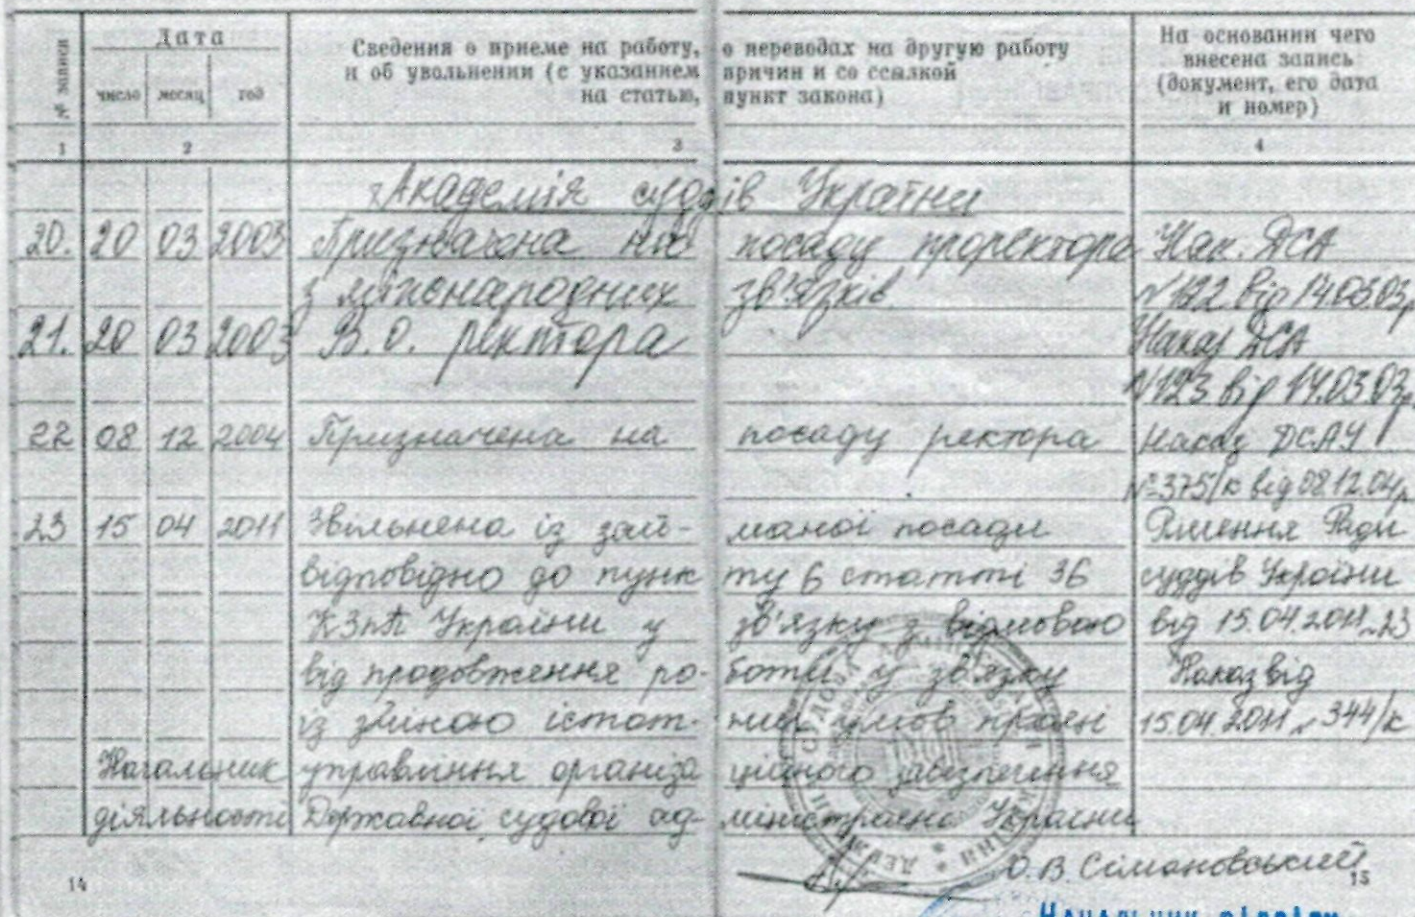 № записи
Дата
число месяц год
Сведения о приеме на работу, о переводах на другую работу
и об увольнении (с указанием причин и со ссылкой
на статью, пункт закона)
На основании чего
внесена запись
(документ, его дата
и номер)
1 2 3 4
Академія суддів України
20. 20 03 2003 Призначена на посаду проректора Нак. ДСА
з міжнародних зв'язків №122 від 14.03.03р.
21. 20 03 2003 В.о. ректора Наказ ДСА
№123 від 14.03.03р.
22 08 12 2004 Призначена на посаду ректора Наказ ДСАУ
№375/к від 08.12.04р
23 15 04 2011 Звільнена із зай- маної посади Рішення Ради
відповідно до пунк ту 6 статті 36 суддів України
КЗпП України у зв'язку з відмовою від 15.04.2011 №23
від продовження ро- боти у зв'язку Наказ від
із зміною істот- них умов праці 15.04.2011 № 344/к
Начальник управління організа ційного забезпечення
діяльності Державної судової ад- міністрації України
О.В. Сімановський
14 15
Начальник відділу